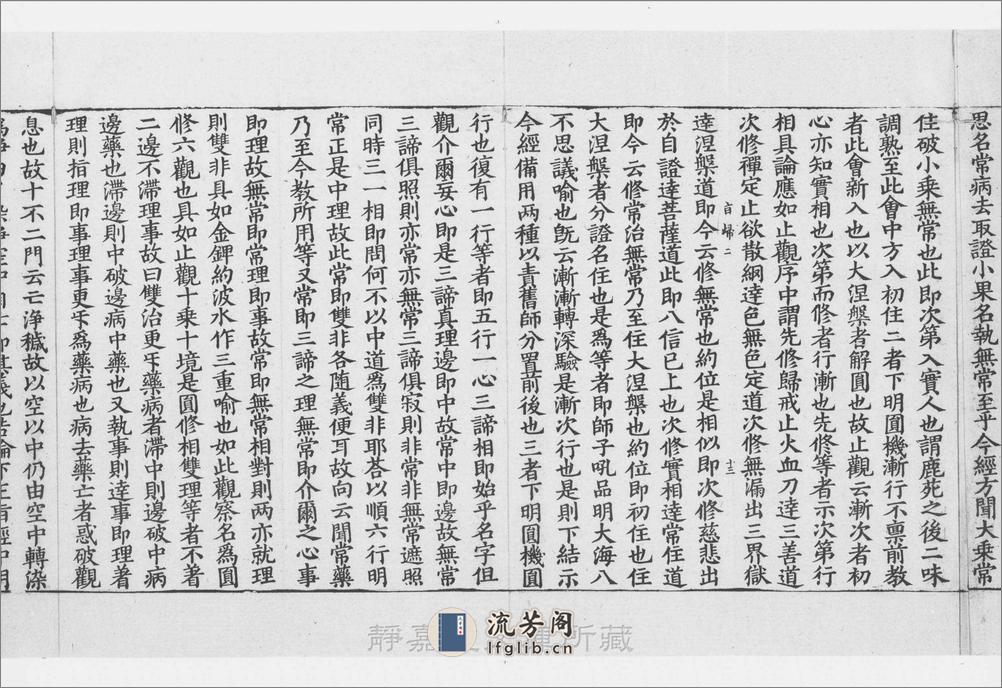 思名常病去取證小果名執無常至乎今經方聞大乘常
住破小乘無常也此即次第入實人也謂鹿苑之後二味
調熟至此會中方入初住二者下明圓機漸行不稟前教
者此會新入也以大涅槃者解圓也故止觀云漸次者初
心亦知實相也次第而修者行漸也先修等者示次第行
相具論應如止觀序中謂先修歸戒止火血刀達三善道
次修禪定止欲散網達色無色定道次修無漏出三界獄
達涅槃道即今云修無常也約位是相似即次修慈悲出
於自證達菩薩道此即八信已上也次修實相達常住道
即今云修常治無常乃至住大涅槃也約位即初住也住
大涅槃者分證名住也是為等者即師子吼品明大海八
不思議喻也既云漸漸轉深驗是漸次行也是則下結示
今經備用兩種以責舊師分置前後也三者下明圓機圓
行也復有一行等者即五行一心三諦相即始乎名字但
觀介爾妄心即是三諦真理邊即中故常中即邊故無常
三諦俱照則亦常亦無常三諦俱寂則非常非無常遮照
同時三一相即問何不以中道為雙非耶荅以順六行明
常正是中理故此常即雙非各隨義便耳故向云聞常藥
乃至今教所用等又常即三諦之理無常即介爾之心事
即理故無常即常理即事故常即無常相對則兩亦就理
則雙非具如金錍約波水作三重喻也如此觀察名為圓
修六觀也具如止觀十乘十境是圓修相雙理等者不著
二邊不滯理事故曰雙治更㸦藥病者滯中則邊破中病
邊藥也滯邊則中破邊病中藥也又執事則達事即理著
理則指理即事理事更㸦為藥病也病去藥亡者惑破觀
息也故十不二門云亡淨穢故以空以中仍由空中轉染
百歸二
十三
静嘉 所藏
流芳阁
lfglib.cn